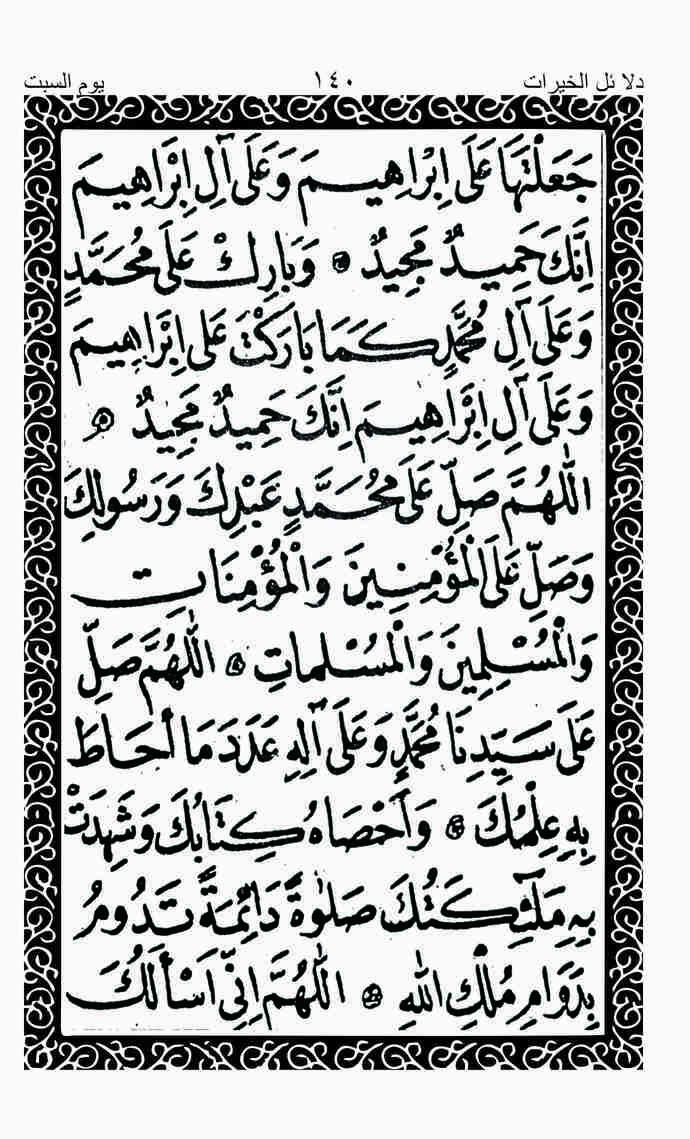 دلائل الخيرات ١٤٠ يوم السبت
جَعَلْتَهَا عَلَى اِبْرَاهِيمَ وَعَلَى آلِ اِبْرَاهِيمَ
اِنَّكَ حَمِيدٌ مَجِيدٌ ۞ وَبَارِكْ عَلَى مُحَمَّدٍ
وَعَلَى آلِ مُحَمَّدٍ كَمَا بَارَكْتَ عَلَى اِبْرَاهِيمَ
وَعَلَى آلِ اِبْرَاهِيمَ اِنَّكَ حَمِيدٌ مَجِيدٌ ۞
اَللّٰهُمَّ صَلِّ عَلَى مُحَمَّدٍ عَبْدِكَ وَرَسُولِكَ
وَصَلِّ عَلَى الْمُؤْمِنِينَ وَالْمُؤْمِنَاتِ
وَالْمُسْلِمِينَ وَالْمُسْلِمَاتِ ۞ اَللّٰهُمَّ صَلِّ
عَلَى سَيِّدِنَا مُحَمَّدٍ وَعَلَى آلِهِ عَدَدَ مَا أَحَاطَ
بِهِ عِلْمُكَ ۞ وَاَحْصَاهُ كِتَابُكَ وَشَهِدَتْ
بِهِ مَلٰٓئِكَتُكَ صَلٰوةً دَائِمَةً تَدُومُ
بِدَوَامِ مُلْكِ اللّٰهِ ۞ اَللّٰهُمَّ اِنِّي اَسْأَلُكَ